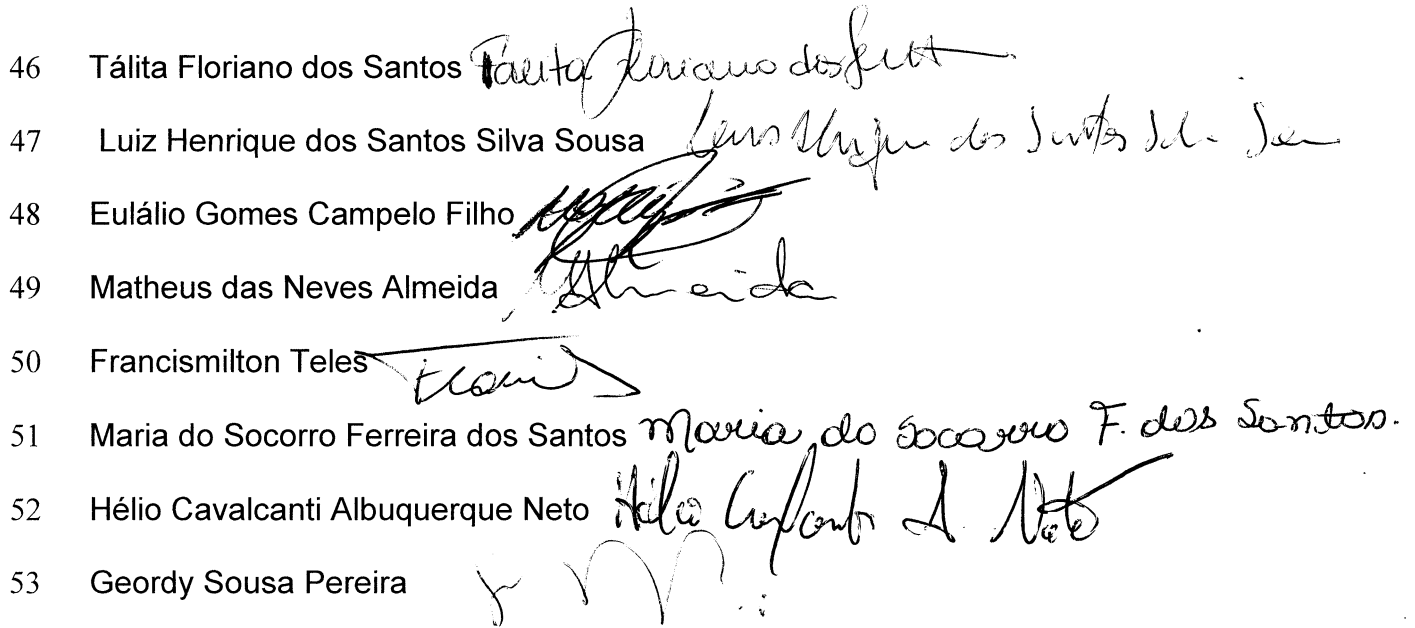 46 Tálita Floriano dos Santos Talita Floriano dos
47 Luiz Henrique dos Santos Silva Sousa Luis dos Santos
48 Eulálio Gomes Campelo Filho
49 Matheus das Neves Almeida Almeida
50 Francismilton Teles
51 Maria do Socorro Ferreira dos Santos Maria do Socorro F. dos Santos.
52 Hélio Cavalcanti Albuquerque Neto Hélio Cavalcanti A. Neto
53 Geordy Sousa Pereira